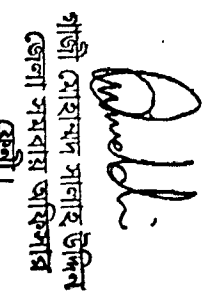 গাজী মোহাম্মদ সালাহ উদ্দিন
জেলা সমবায় অফিসার
ফেনী।